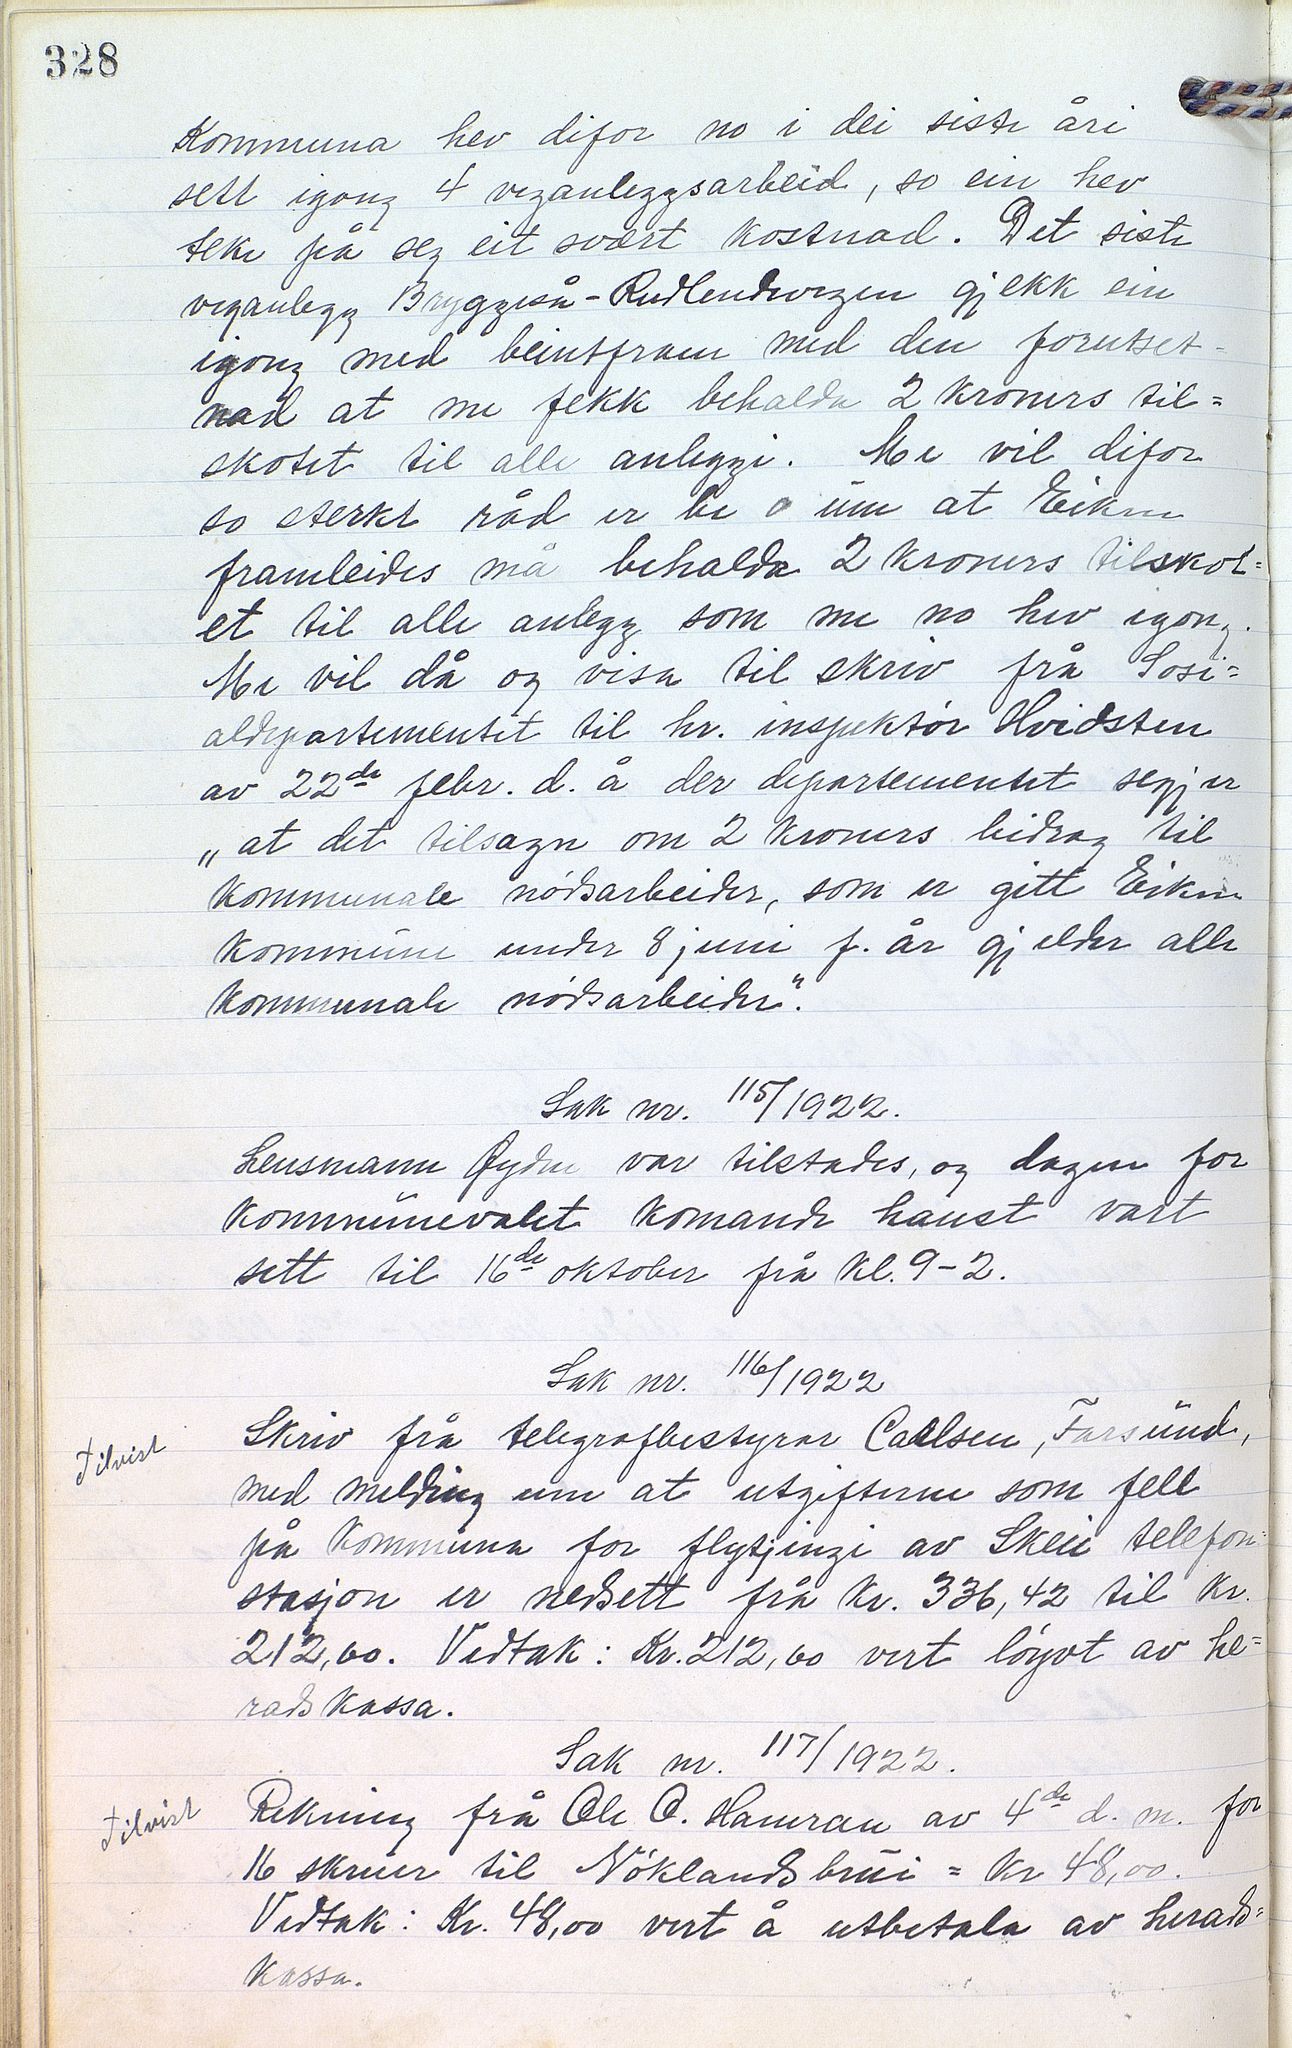 328
Kommuna hev difor no i dei siste åri
sett igong 4 veganleggsarbeid, so ein hev
teke på seg eit svært kostnad. Det siste
veganlegg Bryggeså-Rudlendvegen gjekk ein
igong med beintfram med den foretset-
nad at me fekk behalda 2 kroners til=
skotet til alle anleggi. Me vil difor
so sterkt råd er be um at Eiken
framleides må behalda 2 kroners tilskot=
et til alle anlegg som me no hev igong.
Me vil då og visa til skriv frå Sosi=
aldepartementet til hr. inspektør Hvidsten
av 22de febr. d. å der departementet segjer
„at det tilsagn om 2 kroners bidrag til
kommunale nødsarbeider, som er gitt Eiken
kommune under 8 juni f. år gjelder alle
kommunale nødsarbeider".
Sak nr. 115/1922.
Lensmann Øydne var tilstades, og dagen for
kommunevalet komande haust vart
sett til 16de oktober frå kl. 9-2.
Sak nr. 116/1922
Tilvist
Skriv frå telegrafbestyrar Carlsen, Farsund,
med melding um at utgifterne som fell
på kommuna for flytjingi av Skeie telefon=
stasjon er nedsett frå kr. 336,42 til kr.
212,00. Vedtak: Kr. 212,00 vert løyvt av he=
radskassa.
Sak nr. 117/1922.
Tilvist
Rekning frå Ole O. Hamran av 4de d. m. for
16 skruer til Nöklandsbrui = kr 48,00.
Vedtak: Kr. 48,00 vert å utbetala av herads=
kassa.